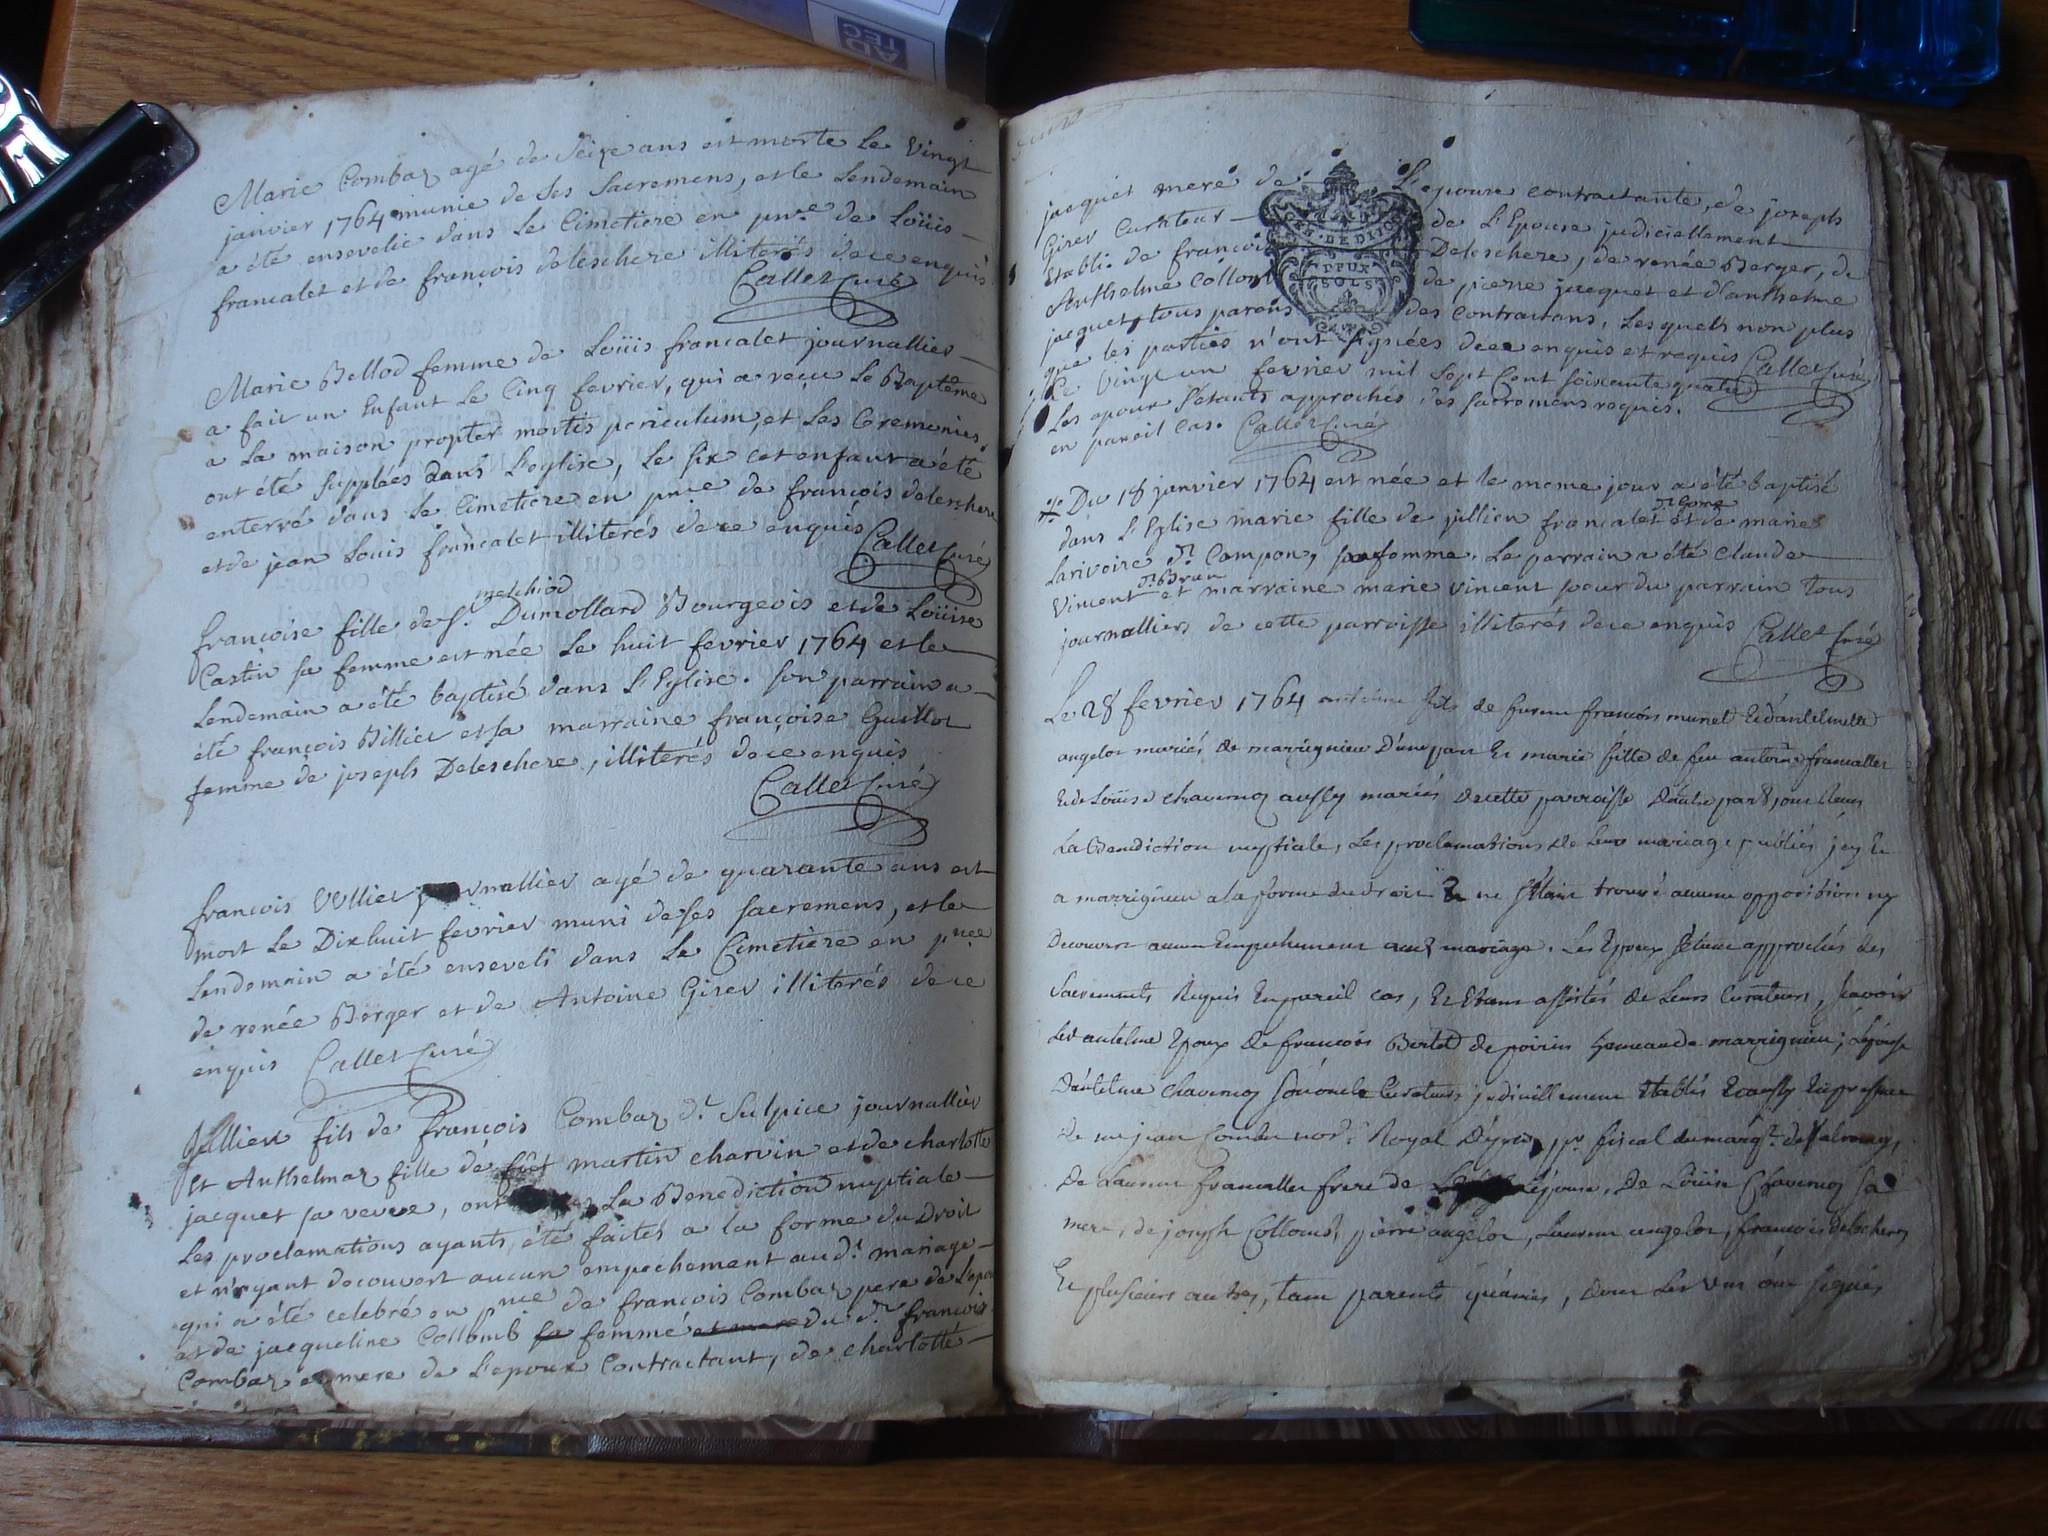 AD
TEC
Marie Combaz agé de Seize ans est morte le Vingt
janvier 1764 munie de ses Sacremens, et le Lendemain
a été ensevelie dans Le Cimetiere en pnce de Loüis
francalet et de françois deleschere illiterés de ce enquis
Callet Curé
Marie Bellod femme de Loüis francalet journallier
a fait un Enfant Le Cinq fevrier, qui a reçu Le Baptême
a La maison propter mortis periculum, et Les Ceremonies
ont été supplées dans L'eglise, Le six cet enfant a été
enterré dans Le Cimetiere en pnce de françois deleschere
et de jean Louis francalet illiterés de ce enquis Callet Curé
melchiod
françoise fille de S.r Dumollard Bourgeois et de Loüise
Castin sa femme est née Le huit fevrier 1764 et le
Lendemain a été baptisé dans L'Eglise. son parrain a
été françois Billiet et sa marraine françoise Guillot
femme de joseph Deleschere, illiterés de ce enquis
Callet Curé
françois Vullier journallier agé de quarante ans est
mort Le Dixhuit fevrier muni de ses sacremens, et le
Lendemain a été enseveli dans Le Cimetiere en pnce
de renée Berger et de Antoine Girer illiterés de ce
enquis Callet Curé
Jullien fils de françois Combaz d.t Sulpice journallier
Et Anthelmaz fille de martin charvin et de charlotte
jacquet sa veuve, ont La Benediction nuptiale
Les proclamations ayants été faites a la forme du Droit
et n'ayant decouvert aucun empechement aud.t mariage
qui a été celebré en pnce de françois Combaz pere de L'epoux
et de jacqueline Collomb sa femme et mere du d.t françois
Combaz et mere de L'epoux Contractant, de charlotte
jacquet mere de L'epouse contractante, de joseph
Girer Curateur de L'Epouse judiciellement
Etabli. de françois Deleschere, de renée Berger, de
Anthelme Collomb de pierre jacquet et d'anthelme
jacquet, tous parens des Contractans, Lesquels non plus
que les parties n'ont signées de ce enquis et requis Callet Curé
Le Vingt un fevrier mil sept Cent soixante quatre
Les epoux s'étants approchés des sacremens requis
en pareil cas. Callet Curé
GEN. DE DITION
DEUX
SOLS
Du 18 janvier 1764 est née et le meme jour a été baptisé
dans L'Eglise marie fille de jullien francalet et de marie
Larivoire d.t Campon, sa femme. Le parrain a été claude
d.t Brun
Vincent et marraine marie vincent soeur du parrain tous
journalliers de cette parroisse illiterés de ce enquis Callet Curé
Le 28 fevrier 1764 fils de françois munet et d'antelmette
angelot mariés de marrignieu D'une part Et marie fille de feu antoine francallet
Et de Loüise chavencq aussy mariés de cette parroisse D'autre part,
La Benediction nuptiale, Les proclamations de Leur mariage publiés
a marrignieu a la forme du droit Et ne s'étant trouvé aucune opposition ny
Decouvert aucun Empechement aud.t mariage. Les Epoux s'étant approchés des
Sacrements Requis En pareil cas, Et Etant assistés de Leurs Curateurs, sçavoir
Led.t antelme Epoux de françois Bertet de poirin hameau de marrignieu; L'epouse
D'antelme chavencq son oncle Curateurs judiciellement Etablis Et aussy En presence
de me jean not.e Royal D'yenne, pr. fiscal du marq.t de
De Laurent francallet frere de L'épouse, De Loüise Chavencq sa
mere, de joseph Colloud, pierre angelot, Laurent angelot, françois Delescher
Et plusieurs autres, tant parents qu'amis, dont Les uns ont signés